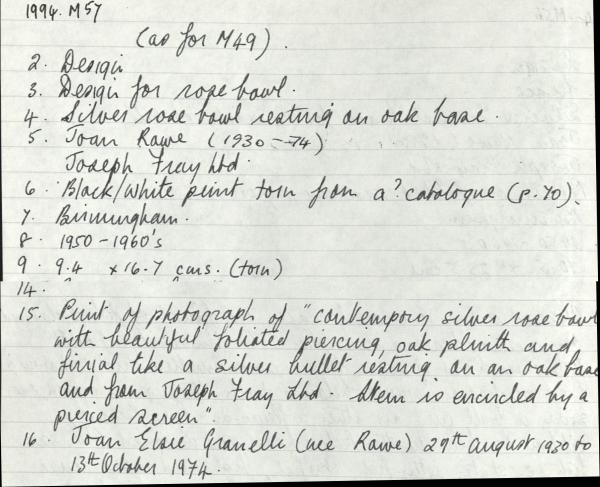 1994. M57
(as for M49).
2. Design
3. Design for rose bowl.
4. Silver rose bowl resting on oak base.
5. Joan Rawe (1930-74)
Joseph Fray Ltd.
6. Black/white print torn from a ? catalogue (p. 70).
7. Birmingham.
8. 1950-1960's
9. 9.4 x 16.7 cms. (torn)
14.
15. Print of photograph of "contempory silver rose bowl
with beautiful foliated piercing, oak plinth and
finial like a silver bullet resting on an oak base
and from Joseph Fray Ltd. Stem is encircled by a
pierced screen".
16. Joan Elsie Granelli (nee Rawe) 29th August 1930 to
13th October 1974.